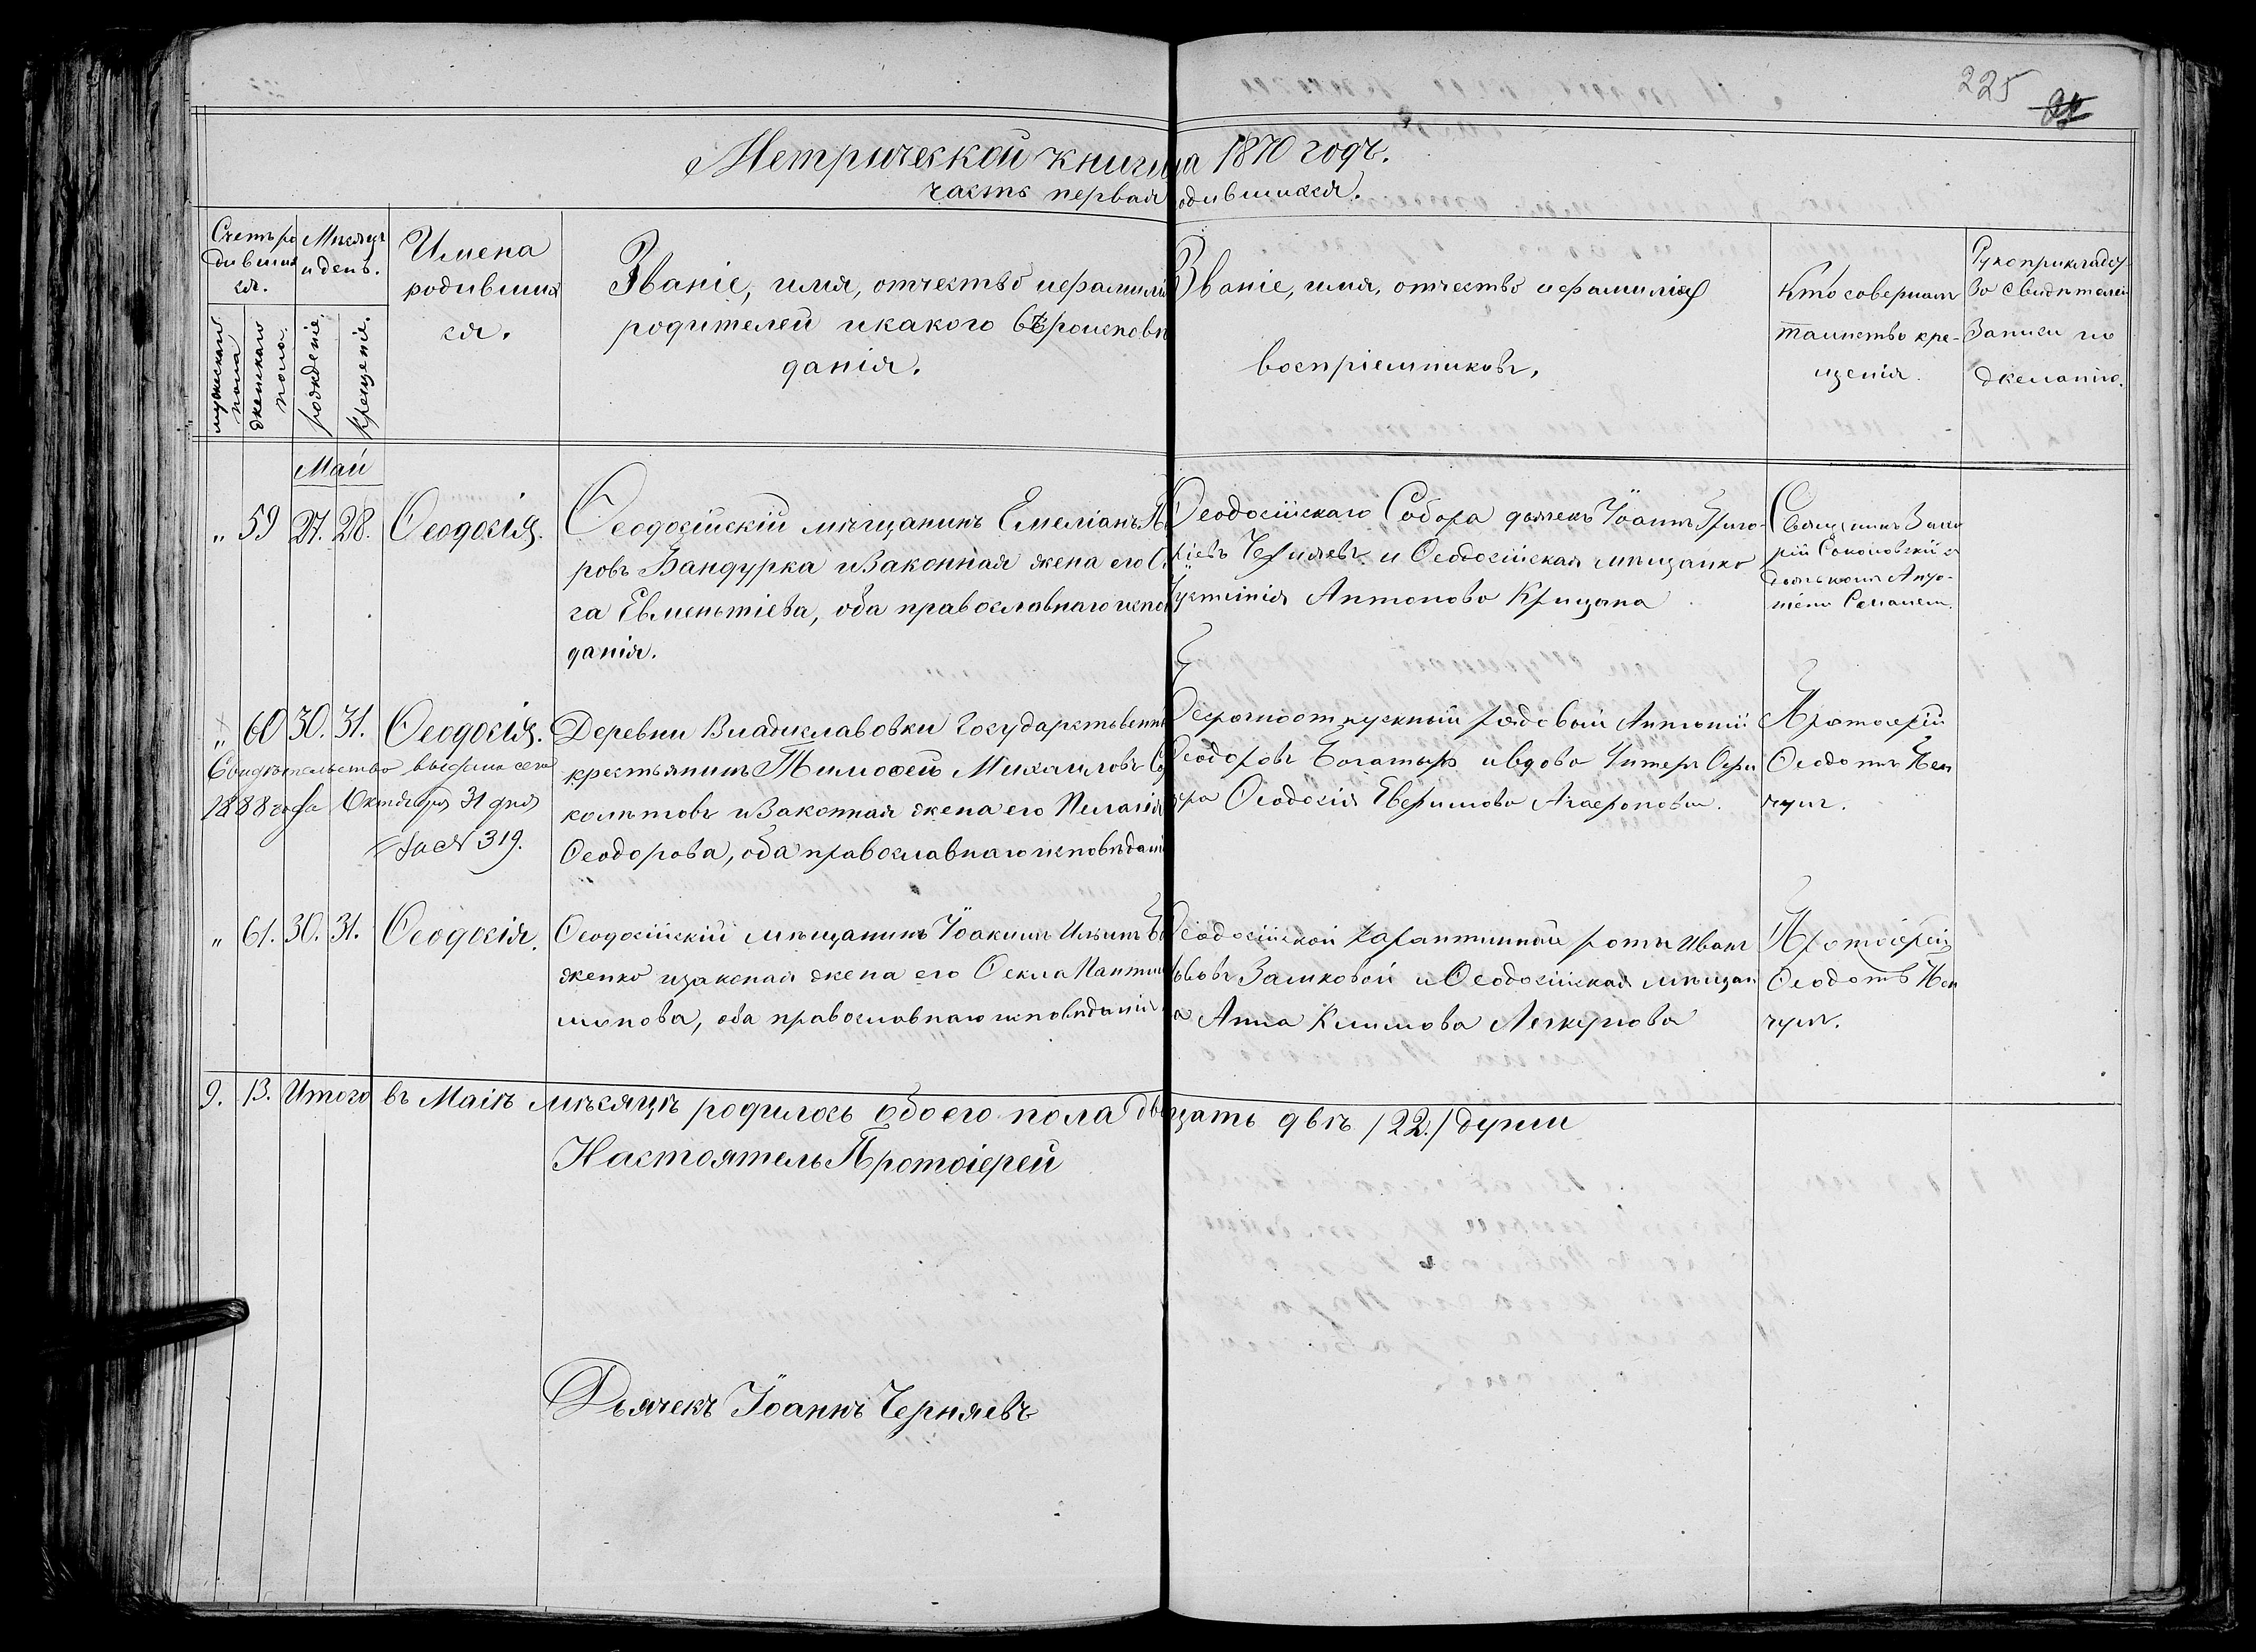 225
Метрической книги на 1870 годъ.
часть первая одившихся.
Счетъ ро
дивших
ся.
мужескаго
пола
женскаго
пола.
Месяцъ
и день.
рожденіе.
крещеніе.
Имена
родивших
ся.
Званіе, имя, отчество и фамилі
родителей и какого вѣроисповѣ
данія.
Званіе, имя, отчество и фамилія
воспріемниковъ.
Кто совершалъ
таинство кре-
щенія.
Рукоприкладст
во свидѣтелей
записи по
желанію.
Май
„ 59 27. 28. Ѳеодосія.
Ѳеодосійскій мѣщанинъ Емеліанъ
ровъ Бандурка и законная жена его
га Евментіева, оба православнаго испо
данія.
Ѳеодосійскаго Собора дьячекъ Іоаннъ Григо-
ріевъ Черняевъ и Ѳеодосійская мѣщанка
Іустинія Антонова Крицына
Священникъ
рій Соколовскій съ
дьячкомъ
„ 60 30. 31. Ѳеодосія.
Свидѣтельство выдано сего
1888 года Октября 31 дня
за № 319.
Деревни Владиславовки государственн
крестьянинъ Тимоѳей Михаиловъ
колѣтовъ и законная жена его Пелагія
Ѳеодорова, оба православнаго исповѣдані
безсрочноотпускный рядовой Антоній
Ѳеодоровъ Богатырь и вдова Унтеръ Офи
ера Ѳеодосія Ефимова Агафонова.
Протоіерей
Ѳеодотъ
чулъ.
„ 61. 30. 31. Ѳеодосія.
Ѳеодосійскій мѣщанинъ Іоакимъ Ильинъ
женко и законая жена его Ѳекла Панти
монова, оба православнаго исповѣданія.
Ѳеодосійской карантинной роты Иванъ
ьвовъ Замковой и Ѳеодосійская мѣщан
а Анна Климова
Протоіерей
Ѳеодотъ
чулъ.
9. 13. Итого въ Маіѣ мѣсяцѣ родилось обоего пола двадцать двѣ /22./ души
Настоятель Протоіерей
Дьячекъ Іоаннъ Черняевъ